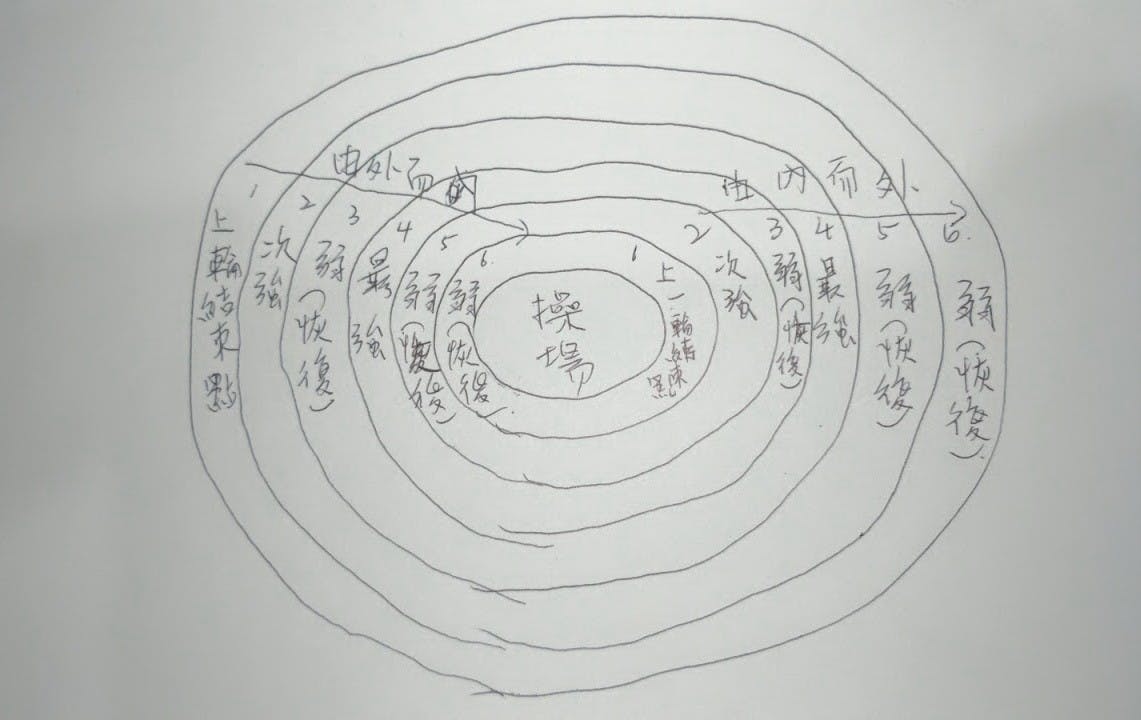 由外而內
由內而外
1
上輪結束點
2
次強
3
弱(恢復)
4
最強
5
弱(恢復)
6.
弱(恢復).
操場
1
上一輪結束點
2
次強
3
弱(恢復)
4
最強
5
弱(恢復)
6.
弱(恢復).